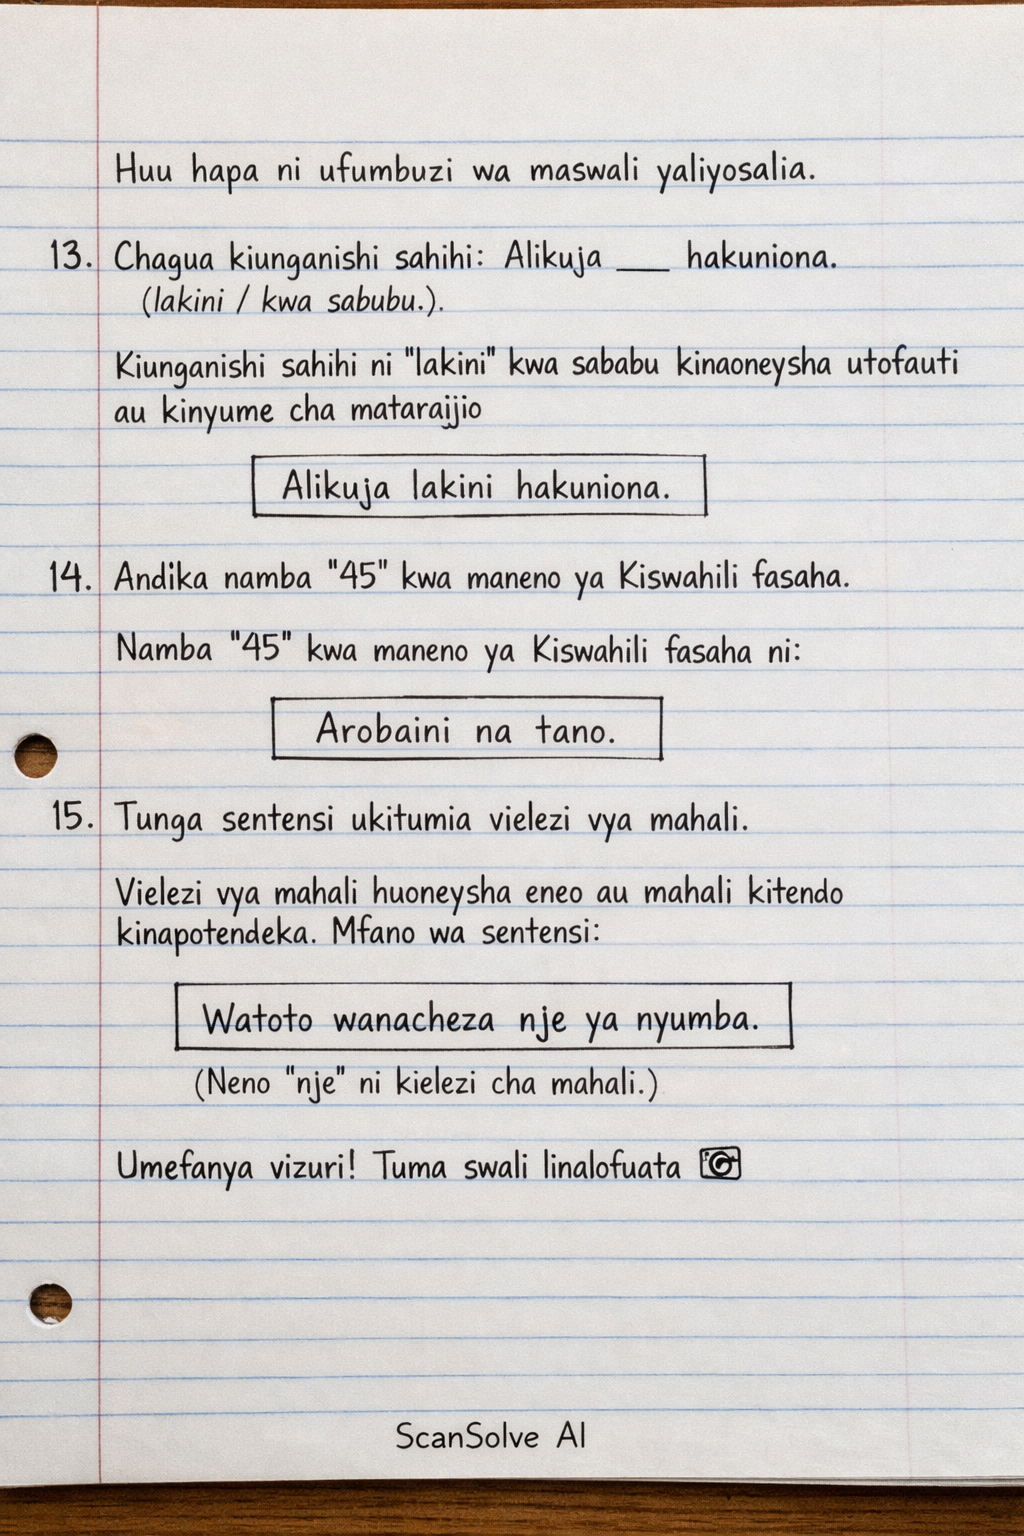 Huu hapa ni ufumbuzi wa maswali yaliyosalia.
13. Chagua kiunganishi sahihi: Alikuja ___ hakuniona.
(lakini / kwa sabubu.).
Kiunganishi sahihi ni "lakini" kwa sababu kinaoneysha utofauti
au kinyume cha mataraijio
Alikuja lakini hakuniona.
14. Andika namba "45" kwa maneno ya Kiswahili fasaha.
Namba "45" kwa maneno ya Kiswahili fasaha ni:
Arobaini na tano.
15. Tunga sentensi ukitumia vielezi vya mahali.
Vielezi vya mahali huoneysha eneo au mahali kitendo
kinapotendeka. Mfano wa sentensi:
Watoto wanacheza nje ya nyumba.
(Neno "nje" ni kielezi cha mahali.)
Umefanya vizuri! Tuma swali linalofuata
ScanSolve AI